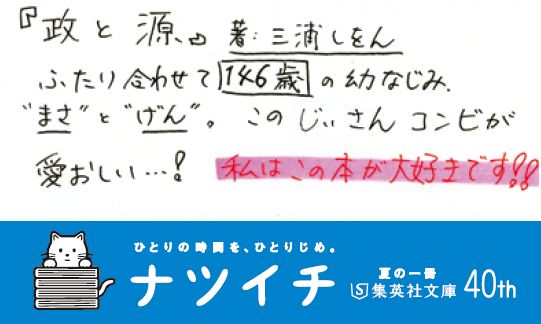 『政と源』 著:三浦しをん
ふたり合わせて146歳の幼なじみ.
"まさ"と"げん"。このじぃさんコンビが
愛おしい…! 私はこの本が大好きです!!
ひとりの時間を、ひとりじめ。
ナツイチ
夏の一冊
集英社文庫 40th